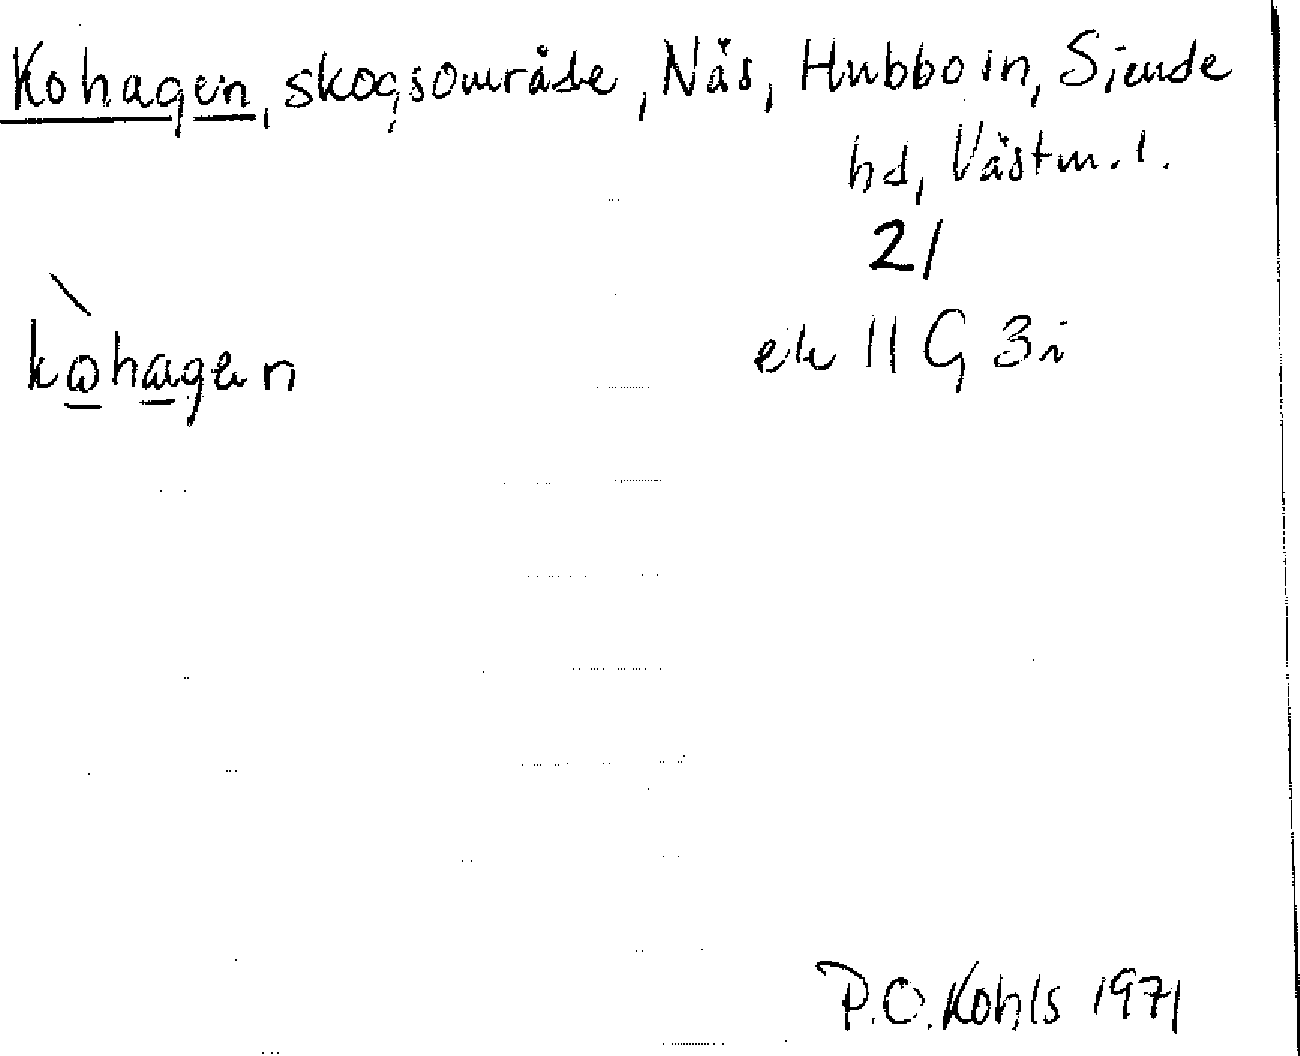 Kohagen, skogsområde, Näs, Hubbo sn, Siende
hd, Västm. l.
21
kòhagen
ek 11 G 3i
P.O. Kohls 1971